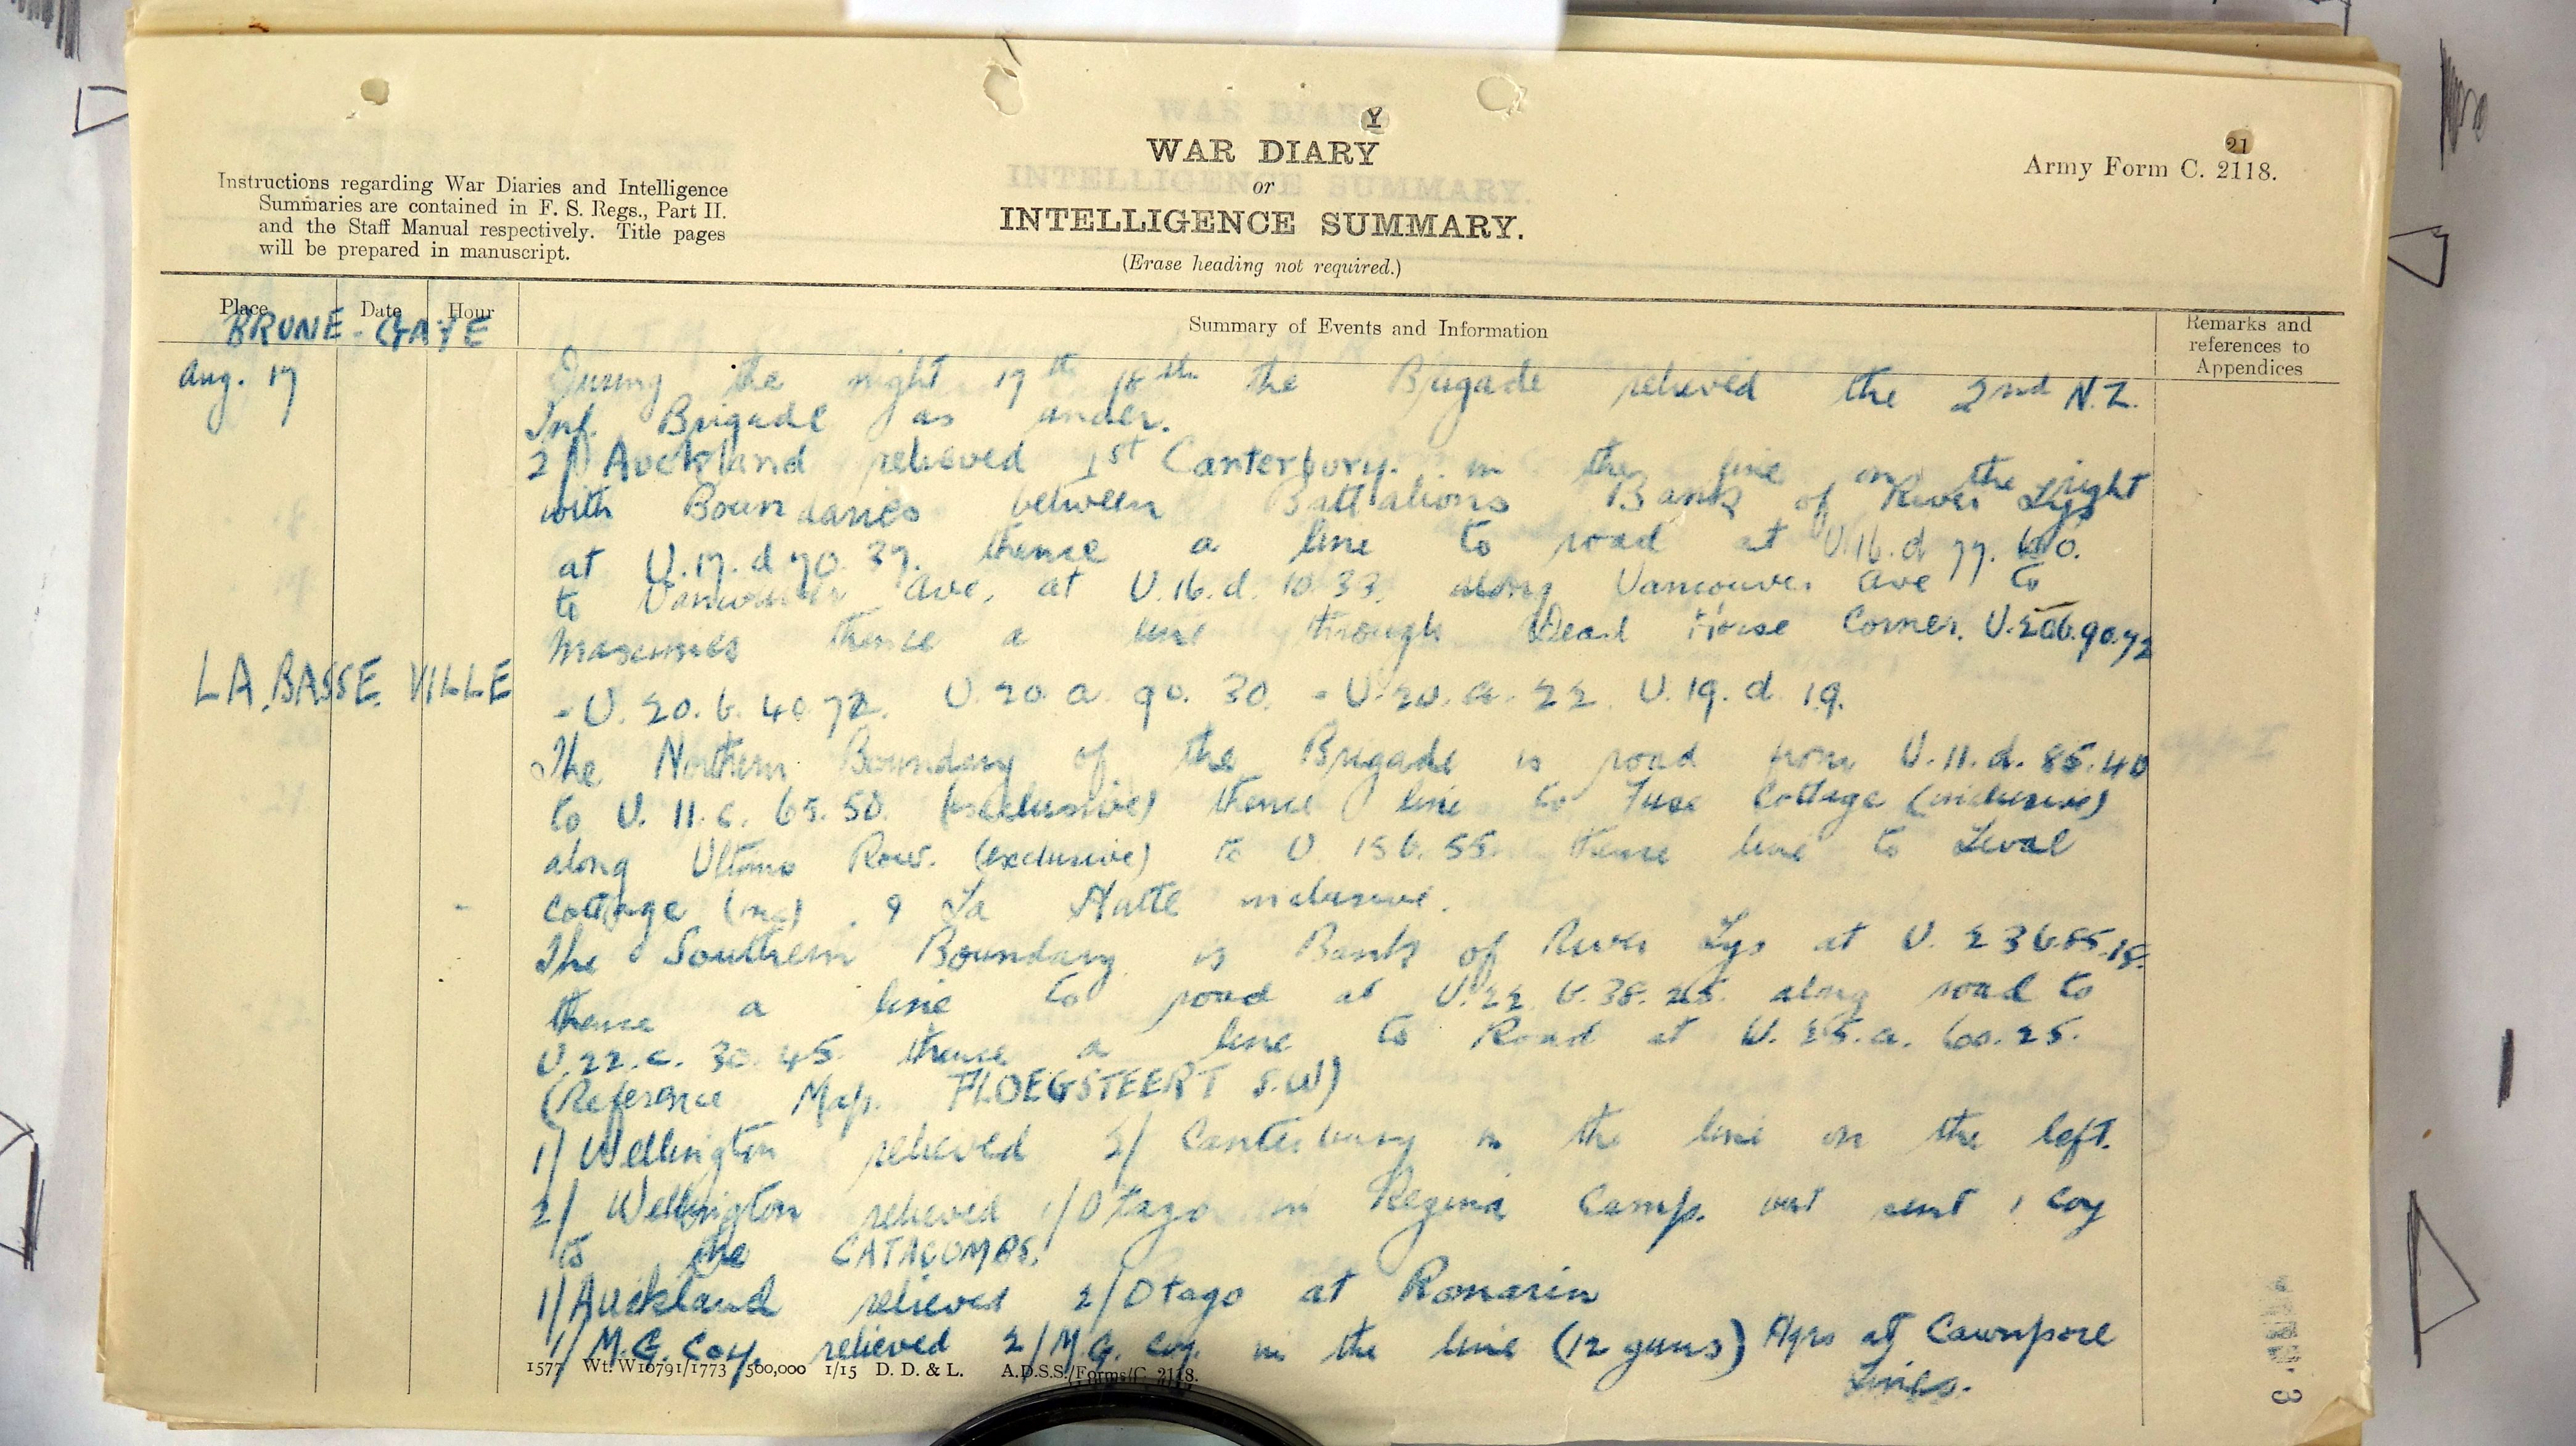 Y
WAR DIARY
or
INTELLIGENCE SUMMARY.
(Erase heading not required.)
21
Army Form C. 2118.
Instructions regarding War Diaries and Intelligence
Summaries are contained in F. S. Regs., Part II.
and the Staff Manual respectively. Title pages
will be prepared in manuscript.
Place Date Hour
Summary of Events and Information
Remarks and
references to
Appendices
BRUNE-GAYE
Aug. 17
During the night 17th 18th the Brigade relieved the 2nd N.Z.
Inf. Brigade as under.
2/ Auckland relieved 1st Canterbury. in the line on the right
with Boundaries between Battalions Bank of River Lys
at U.17.d 70.37. thence a line to road at U.16.d 77. 60.
to Vancouver Ave, at U.16.d. 10.33. along Vancouver Ave to
thence a line through Dead Horse Corner. U.20b.90.72
LA BASSE VILLE
- U. 20. b. 40 72. U. 20 a. 90. 30. - U. 20. a. 22. U. 19. d. 19.
The Northern Boundary of the Brigade is road from U. 11. d. 85. 40
to U. 11. c. 65. 50. (exclusive) thence line to Fuse Cottage (inclusive)
along Ultimo Row. (exclusive) to U 15 b. 55 thence line to Leval
Cottage (inc) . & La Hutte inclusive.
The Southern Boundary is Bank of River Lys at U. 23 b.85.15.
thence a line to road at U. 22 b. 38. 25. along road to
U. 22. c. 30. 45. thence a line to Road at U. 25. a. 60. 25.
(Reference Map. PLOEGSTEERT S.W)
1/ Wellington relieved 2/ Canterbury in the line on the left.
2/ Wellington relieved 1/ Otago in Regina Camp. and sent 1 coy
to the CATACOMBS.
1/ Auckland relieved 2/ Otago at Romarin
1/ M.G. Coy. relieved 2/ M.G. Coy. in the line (12 guns) Hqrs at Cawnpore
Lines.
1577 Wt. W10791/1773 500,000 1/15 D. D. & L. A.D.S.S./Forms/C. 2118.
3